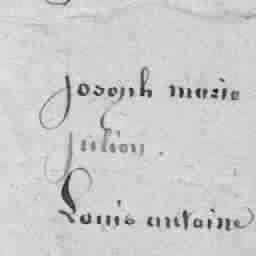 Joseph marie
Julien .
Louis antoine